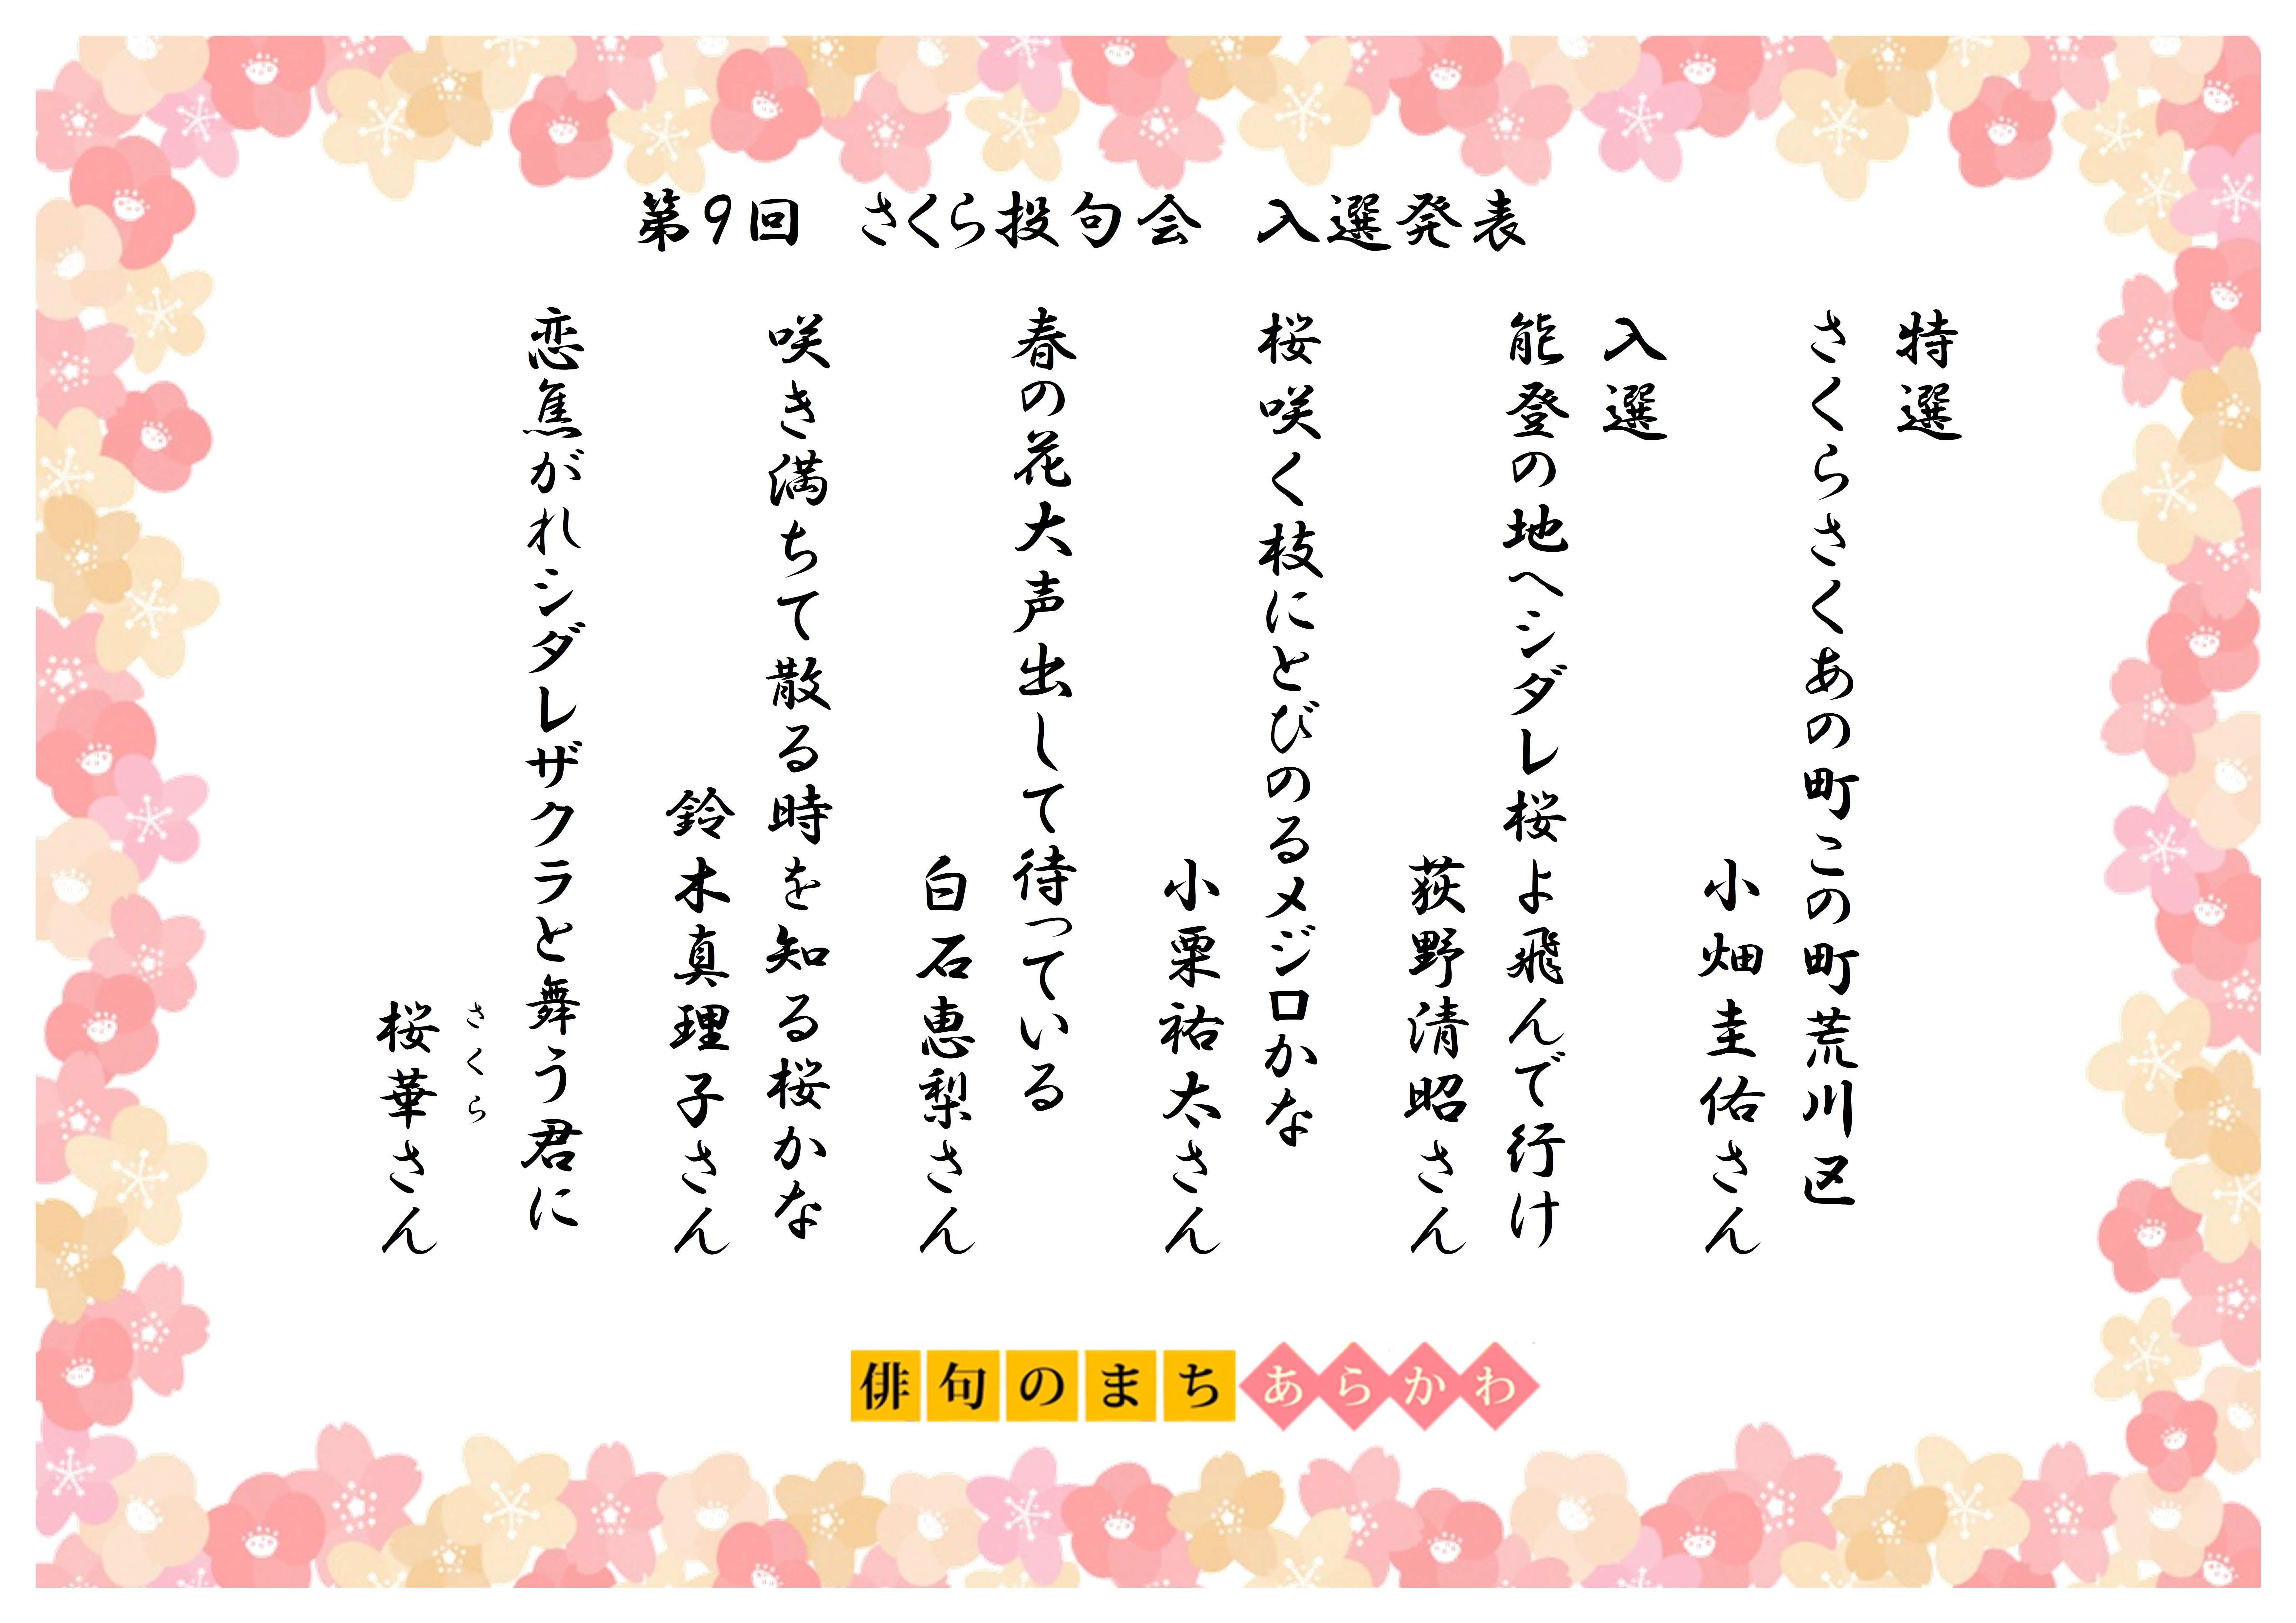 第9回　さくら投句会　入選発表
特選
さくらさくあの町この町荒川区
小畑圭佑さん
入選
能登の地へシダレ桜よ飛んで行け
荻野清昭さん
桜咲く枝にとびのるメジロかな
小栗祐太さん
春の花大声出して待っている
白石恵梨さん
咲き満ちて散る時を知る桜かな
鈴木真理子さん
恋焦がれシダレザクラと舞う君に
さくら
桜華さん
俳句のまちあらかわ